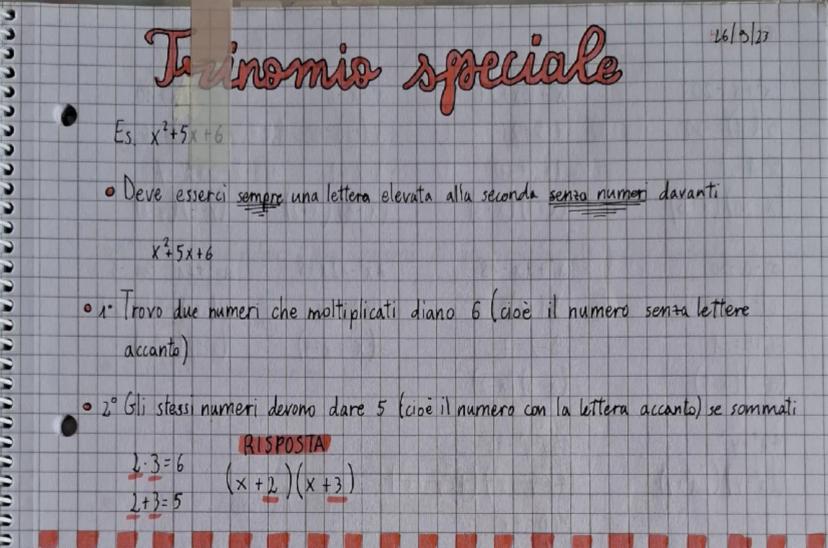 Trinomio speciale
26/9/23
Es. x²+5x+6
• Deve esserci sempre una lettera elevata alla seconda senza numeri davanti
x²+5x+6
• 1° Trovo due numeri che moltiplicati diano 6 (cioè il numero senza lettere
accanto)
• 2° Gli stessi numeri devono dare 5 (cioè il numero con la lettera accanto) se sommati
RISPOSTA
2·3=6
(x+2)(x+3)
2+3=5